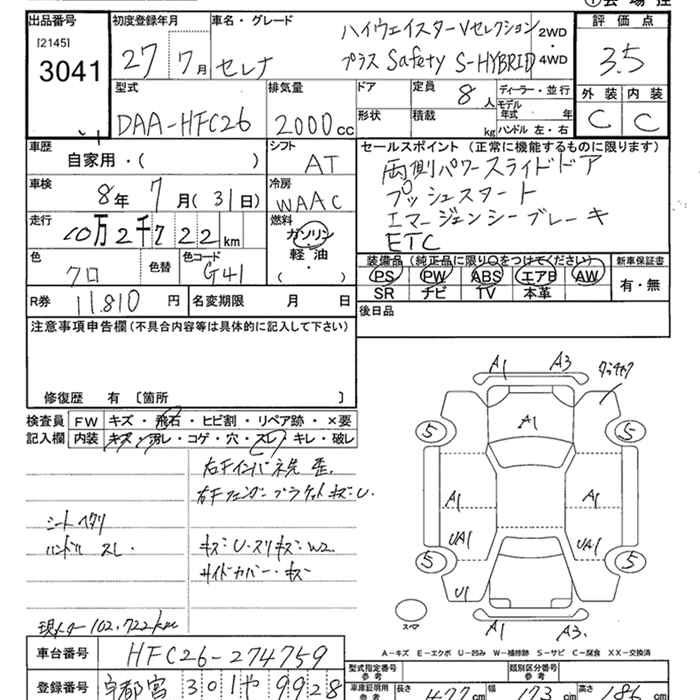 出品番号 初度登録年月 車名・グレード ハイウェイスターVセレクション 2WD 評価点
[2145] 3041 27 7月 セレナ プラス Safety S-HYBRID ・4WD 3.5
型式 DAA-HFC26 排気量 2000cc ドア 定員 8人 ディーラー・並行 外装 内装
形状 積載 kg モデル年式 年 ハンドル 左・右 C C
車歴 自家用・( ) シフト AT セールスポイント (正常に機能するものに限ります)
両側パワースライドドア
車検 8年 7月(31日) 冷房 WAAC プッシュスタート
走行 10万2千722km 燃料 ガソリン エマージェンシーブレーキ
軽油 ETC
色 クロ 色替 色コード G41 ・( ) 装備品 (純正品に限り○をつけてください) 新車保証書
PS PW ABS エアB AW 有・無
R券 11.810円 名変期限 月 日 SR ナビ TV 本革
注意事項申告欄(不具合内容等は具体的に記入して下さい) 後日品
修復歴 有 [箇所 ]
検査員 FW キズ・飛石・ヒビ割・リペア跡・×要
記入欄 内装 キズ・汚レ・コゲ・穴・スレ・キレ・破レ
シートヘタリ
ハンドル スレ
キズ・U・スリキズ・W2
サイドカバー・キズ
現メーター102.722km
A1 A3
A1
5 5
A1 A1
UA1 UA1
5 5
U1
スペア A1 A3
A-キズ E-エクボ U-凹み W-補修跡 S-サビ C-腐食 XX-交換済
車台番号 HFC26-274759
型式指定番号 参考 類別区分番号 参考
登録番号 宇都宮 301 や 9928
車庫証明用 参考 長さ 477cm 幅 173cm 高さ 186cm